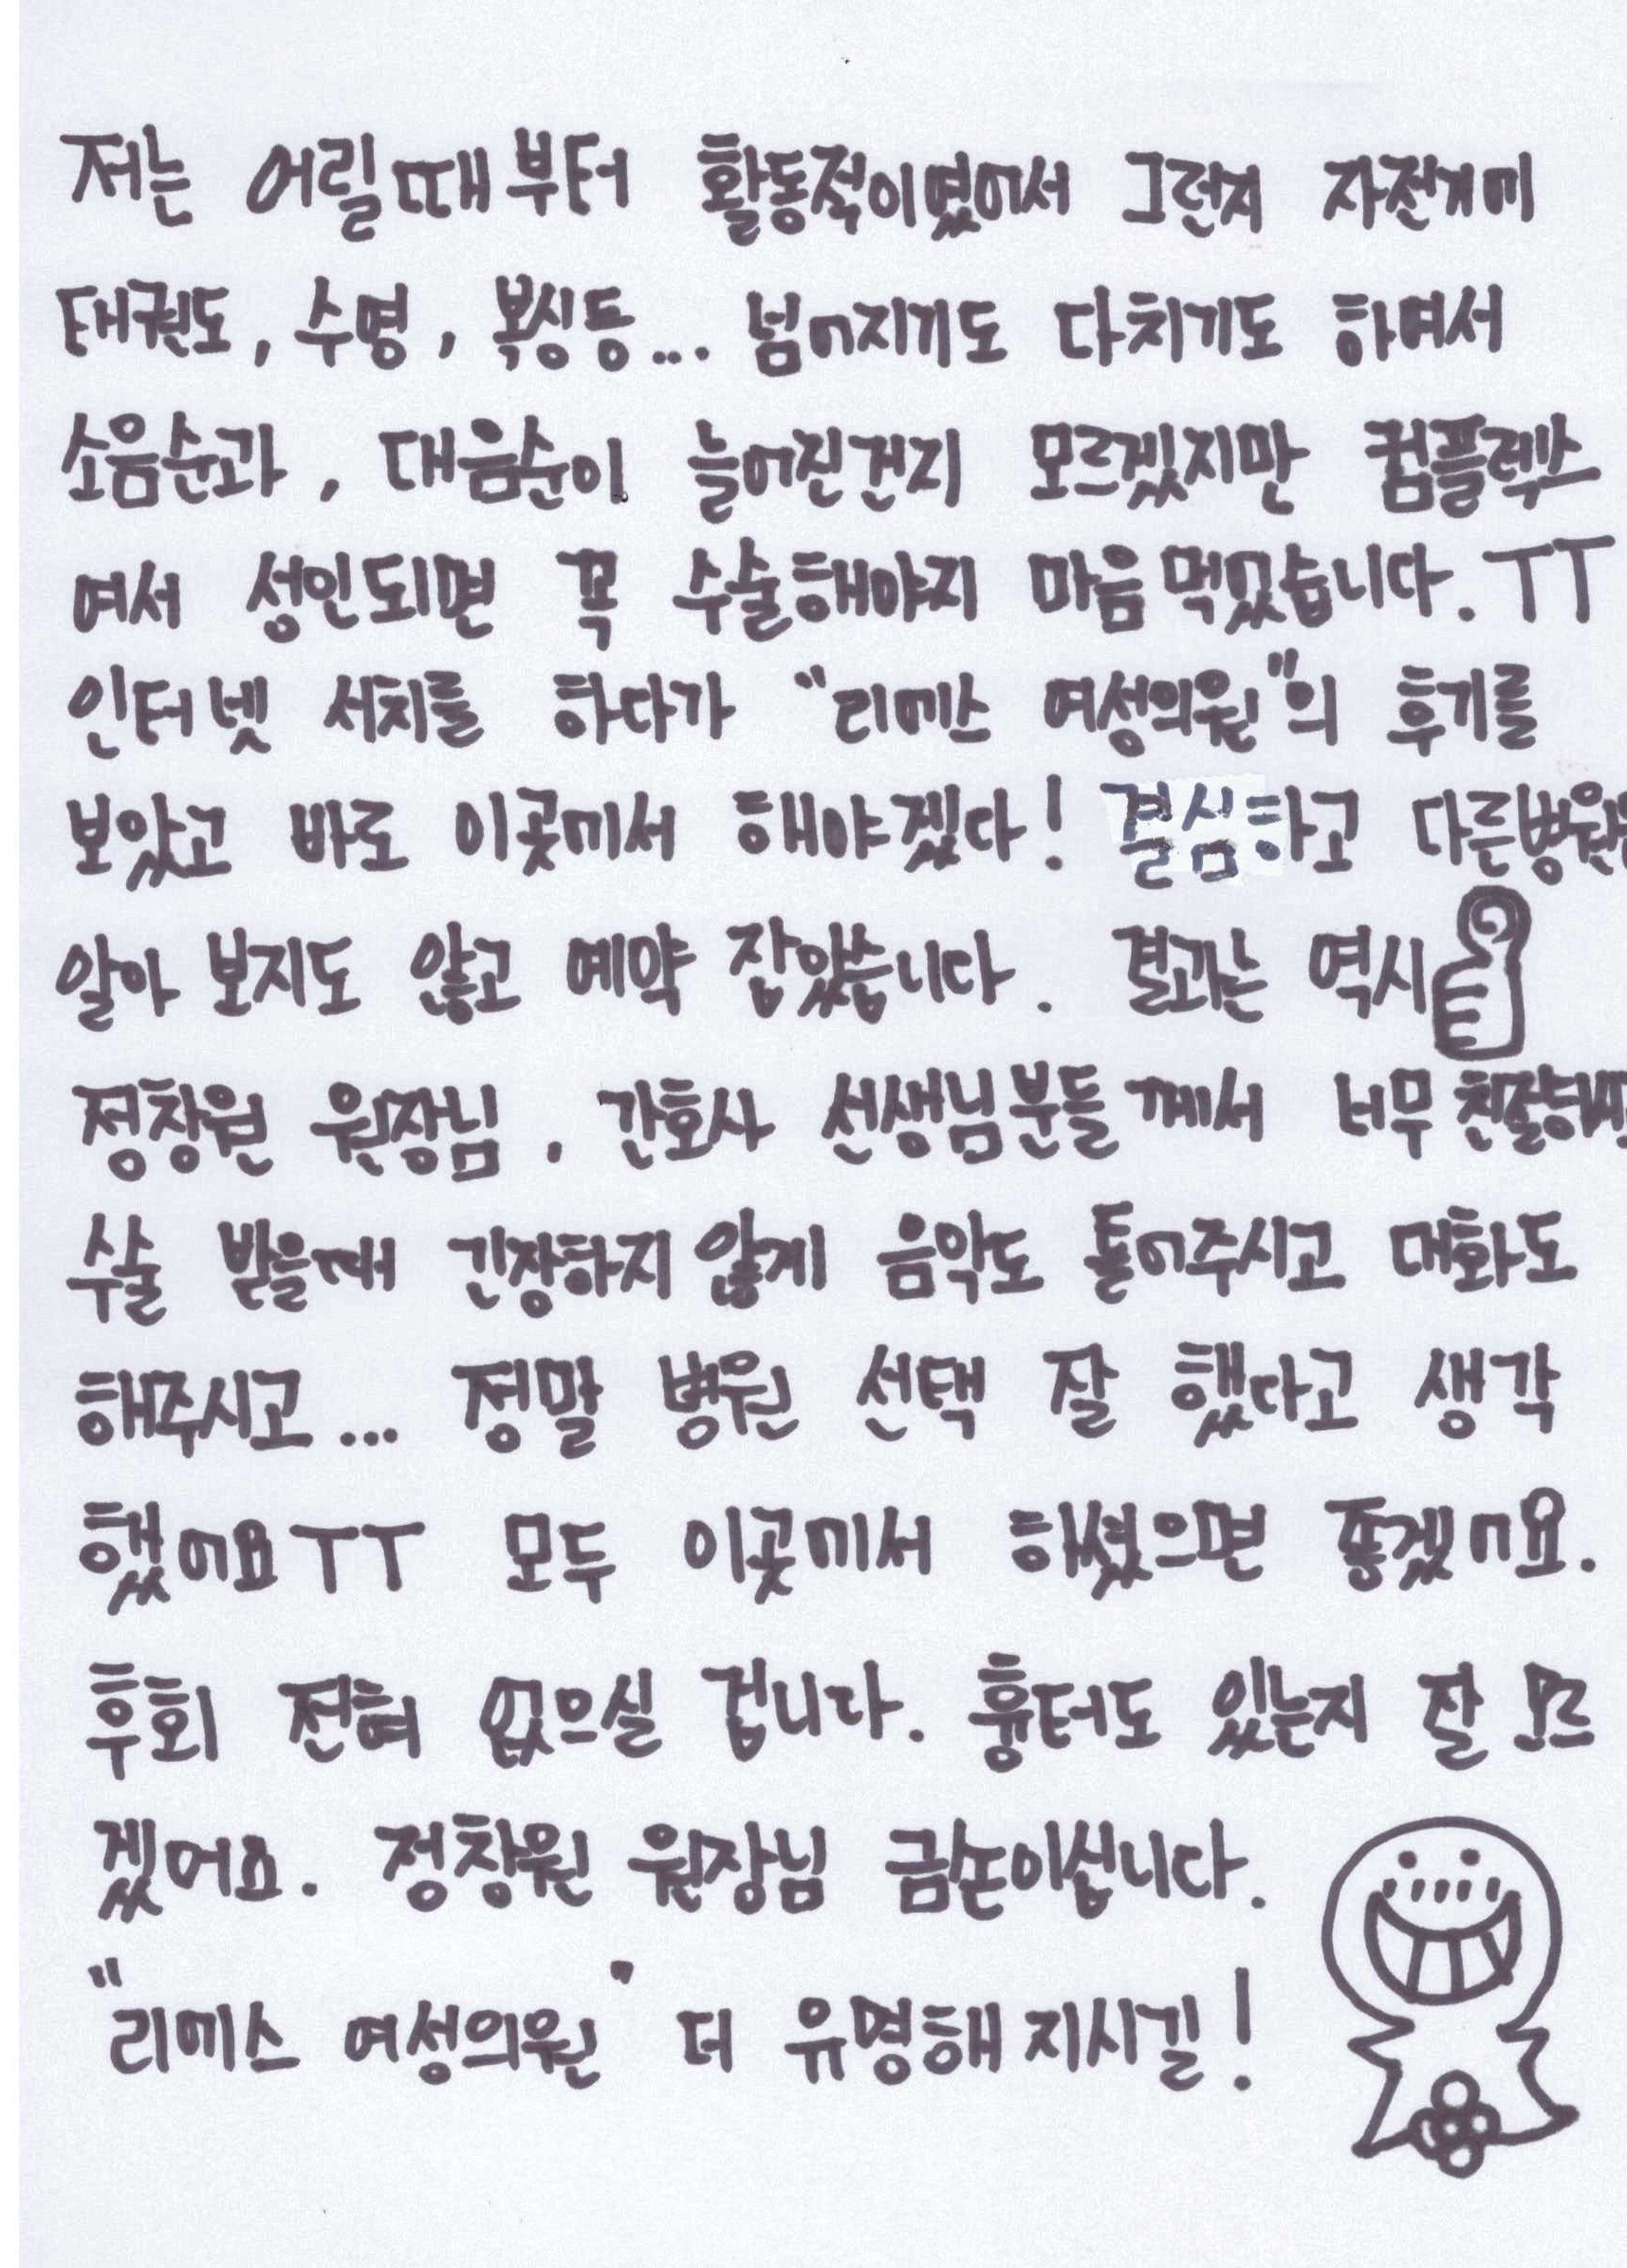 저는 어릴때부터 활동적이였어서 그런지 자전거에
태권도, 수영, 복싱등... 넘어지기도 다치기도 하여서
소음순과, 대음순이 늘어진건지 모르겠지만 컴플렉스
여서 성인되면 꼭 수술해야지 마음먹었습니다. TT
인터넷 서치를 하다가 "리에스 여성의원"의 후기를
보았고 바로 이곳에서 해야겠다! 결심하고 다른병원은
알아 보지도 않고 예약 잡았습니다. 결과는 역시
정창원 원장님, 간호사 선생님분들 께서 너무
수술 받을때 긴장하지 않게 음악도 틀어주시고 대화도
해주시고... 정말 병원 선택 잘 했다고 생각
했어요TT 모두 이곳에서 하셨으면 좋겠어요.
후회 전혀 없으실 겁니다. 흉터도 있는지 잘 모르
겠어요. 정창원 원장님 금손이십니다.
"리에스 여성의원" 더 유명해 지시길!